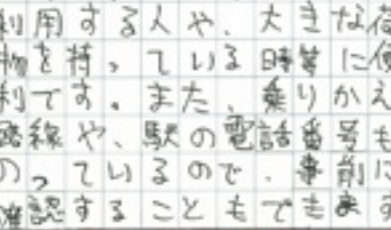 利用する人や、大きな荷
物を持っている時等に便
利です。また、乗りかえ
路線や、駅の電話番号も
のっているので、事前に
確認することもできます